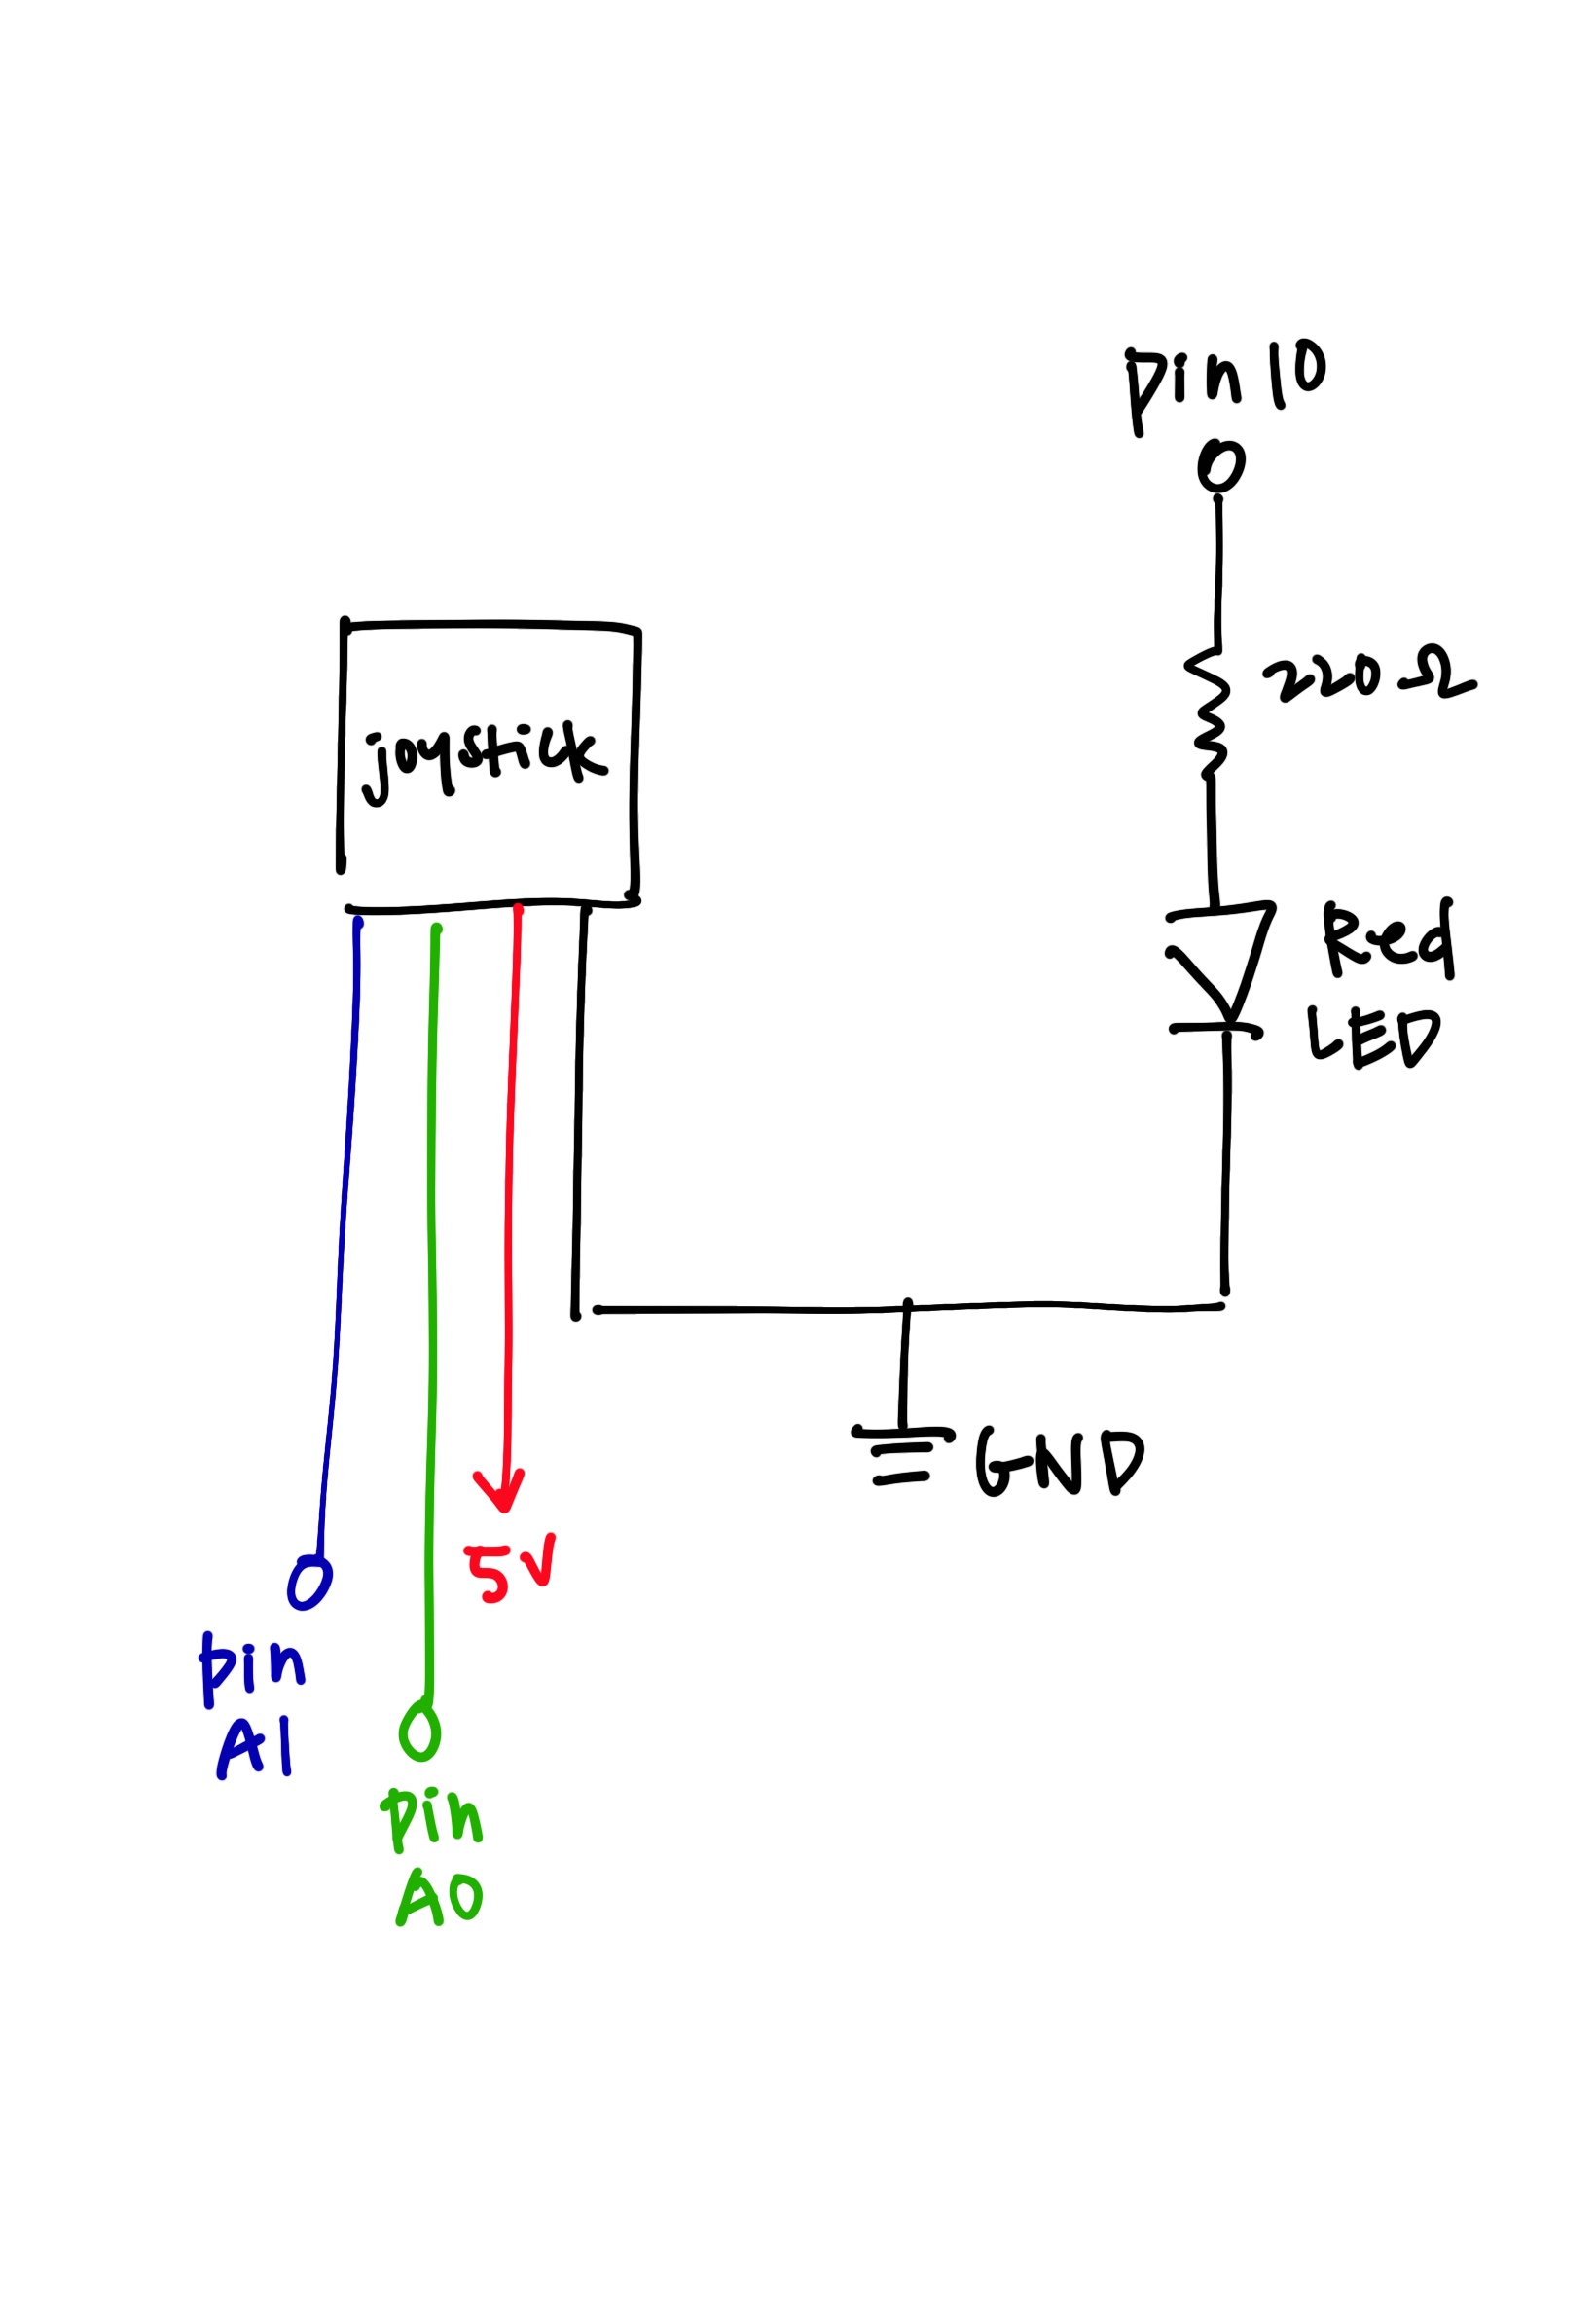 pin 10
220Ω
joystick
Red
LED
GND
5V
pin
A1
pin
A0